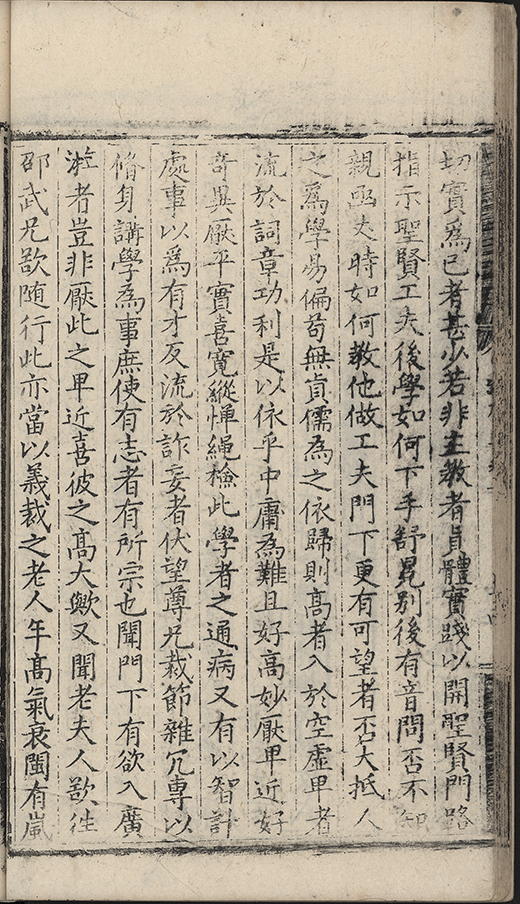 切實為己者甚少若非主教者真體實踐以開聖賢門路
指示聖賢工夫後學如何下手舒晃別後有音問否不知
親函丈時如何教他做工夫門下更有可望者否大抵人
之為學易偏苟無真儒為之依歸則高者入於空虛卑者
流於詞章功利是以依乎中庸為難且好高妙厭卑近好
奇異厭平實喜寬縱憚繩檢此學者之通病又有以智計
處事以為有才反流於詐妄者伏望尊兄裁節雜冗專以
脩身講學為事庶使有志者有所宗也聞門下有欲入廣
遊者豈非厭此之卑近喜彼之高大歟又聞老夫人欲往
邵武兄欲随行此亦當以義裁之老人年高氣衰閩有嵐